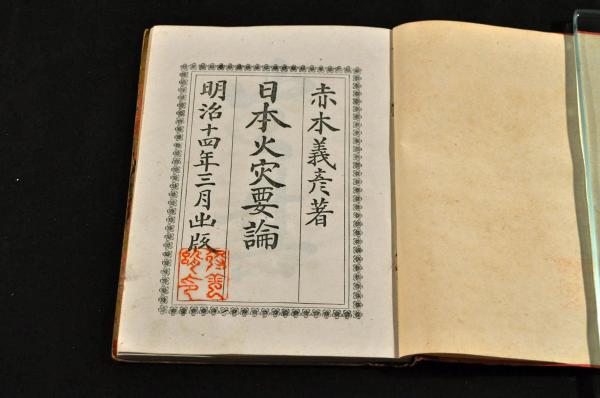 赤木義彦著
日本火灾要論
明治十四年三月出版